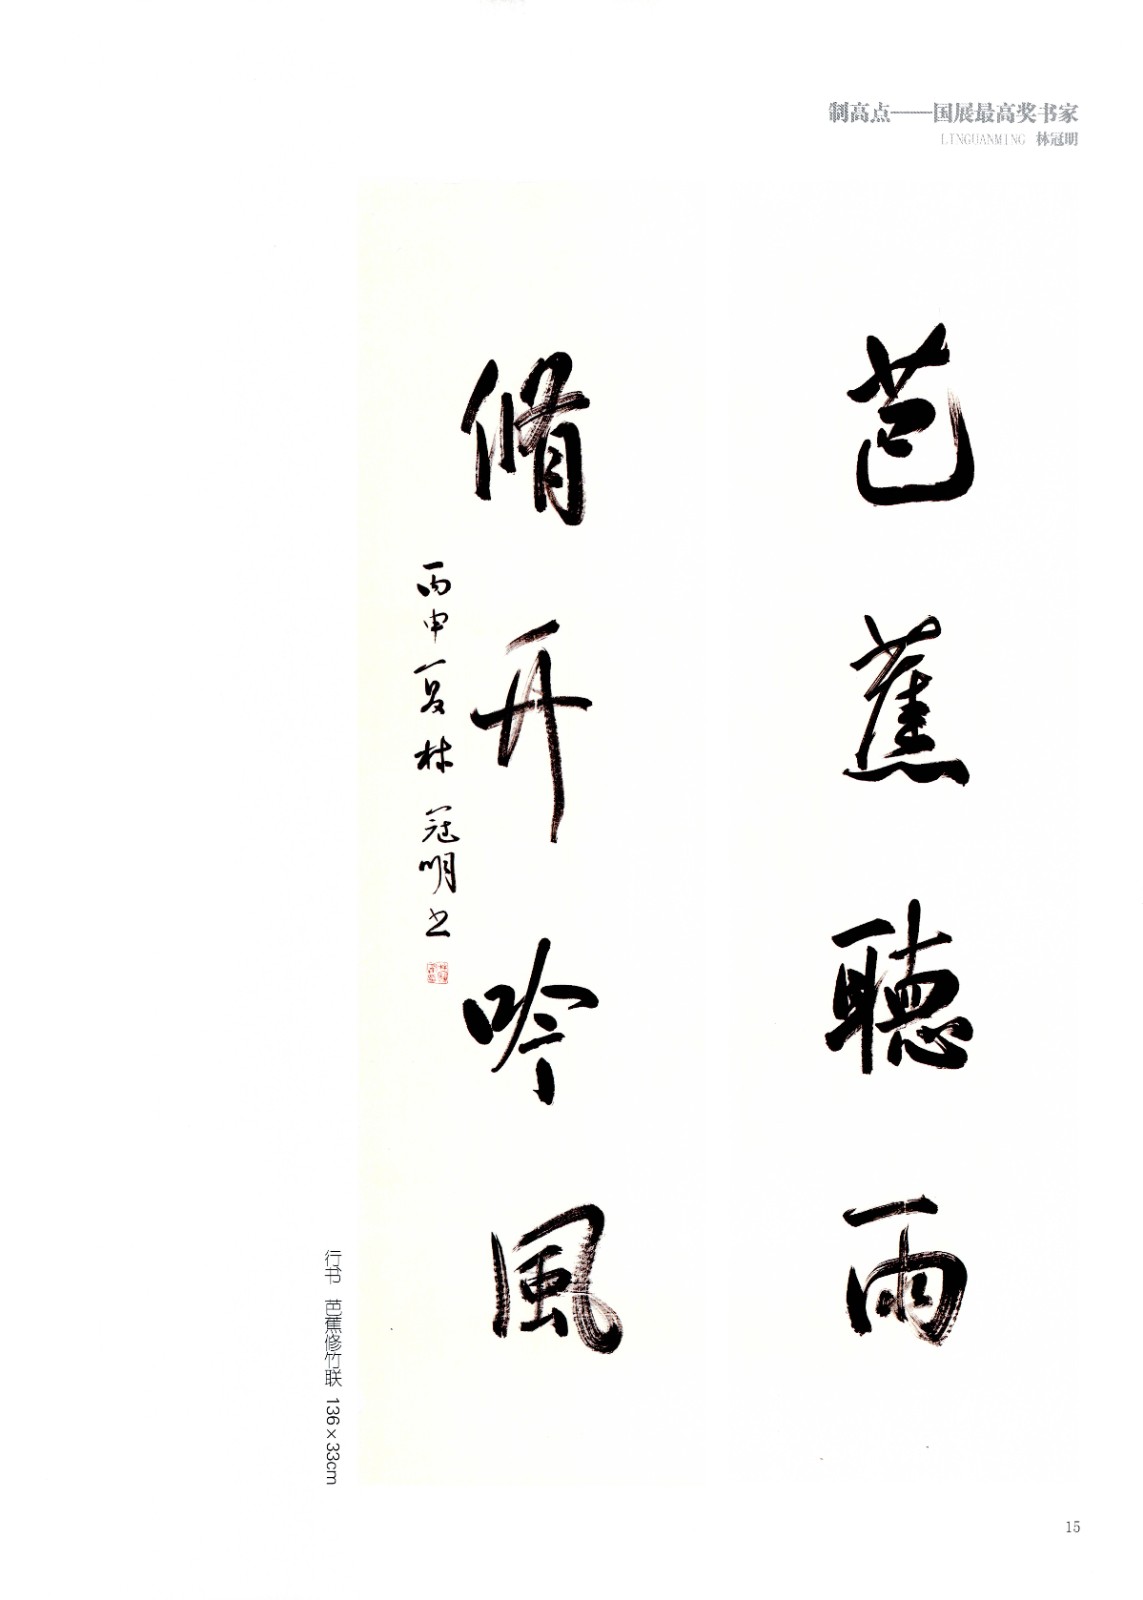 制高点——国展最高奖书家
LINGUANMING 林冠明
芭蕉聽雨
脩竹吟風
丙申夏林冠明书
行书 芭蕉修竹联 136×33cm
15